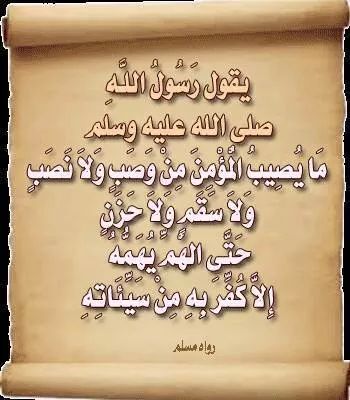 يقول رَسُولُ اللَّهِ
صلى الله عليه وسلم
مَا يُصِيبُ الْمُؤْمِنَ مِنْ وَصَبٍ وَلاَ نَصَبٍ
وَلاَ سَقَمٍ وَلاَ حَزَنٍ
حَتَّى الْهَمِّ يُهَمُّهُ
إِلاَّ كُفِّرَ بِهِ مِنْ سَيِّئَاتِهِ
رواه مسلم